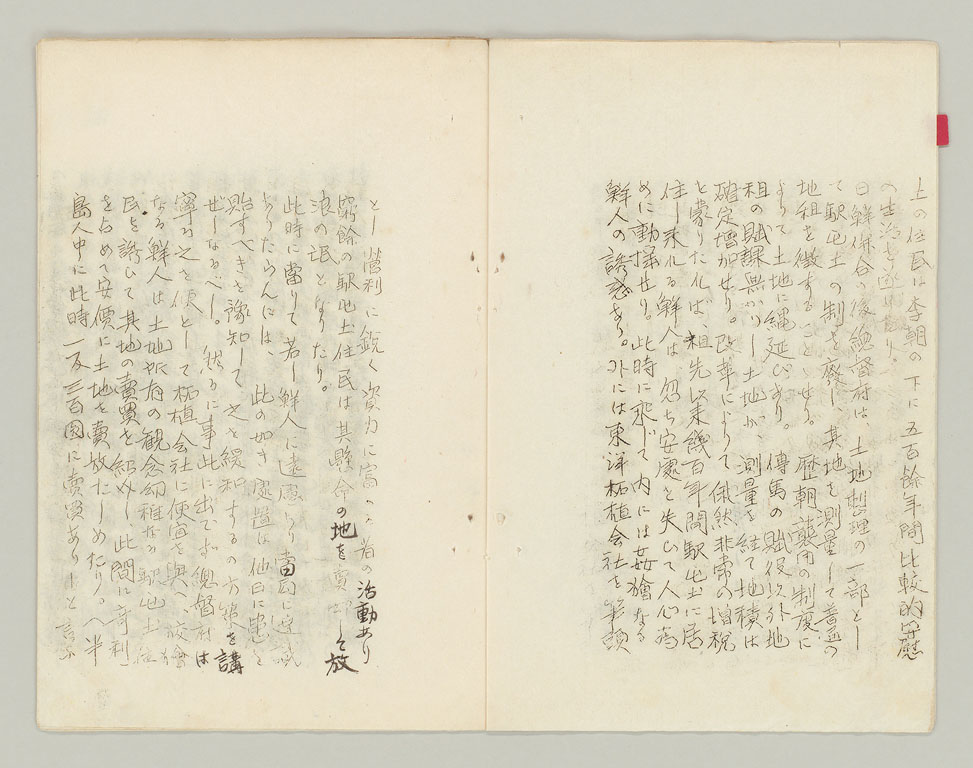 土の住民は李朝の下に五百餘年間比較的安慰
の生活を送れり。
日鮮併合の後總督府は、土地整理の一部とし
て駅屯土の制を廢し、其地を測量して普通の
地租を徴することゝせり。歴朝襲用の制度に
よりて土地に縄延びあり。傳馬の賦役以外地
租の賦課無かりし土地が、測量を経て地積は
確定増加せり。改革によりて俄然非常の増税
を蒙りたれば、祖先以来幾百年間駅屯土に居
住し来れる鮮人は、忽ち安處を失ひて人心為
めに動揺せり。此時に乘じて内には姦獪なる
鮮人の誘惑あり。外には東洋拓植会社を筆頭
とし営利に鋭く資力に富める者の活動あり
窮餘の駅屯土住民は其懸命の地を賣却して放
浪の民となりたり。
此時に當りて若し鮮人に遠慮あり當局に達識
ありたらんには、此の如き處置は他日に患を
貽すべきを豫知して之を緩和するの方策を講
ぜしなるべし。然るに事此に出でず總督府は
寧ろ之を便として拓植会社に便宜を與へ狡獪
なる鮮人は土地所有の観念幼稚なる駅屯土住
民を誘ひて其地の賣買を紹介し、此間に奇利
を占めて安價に土地を賣放たしめたり。(半
島人中に此時一反三百圓に賣買ありしと言ふ